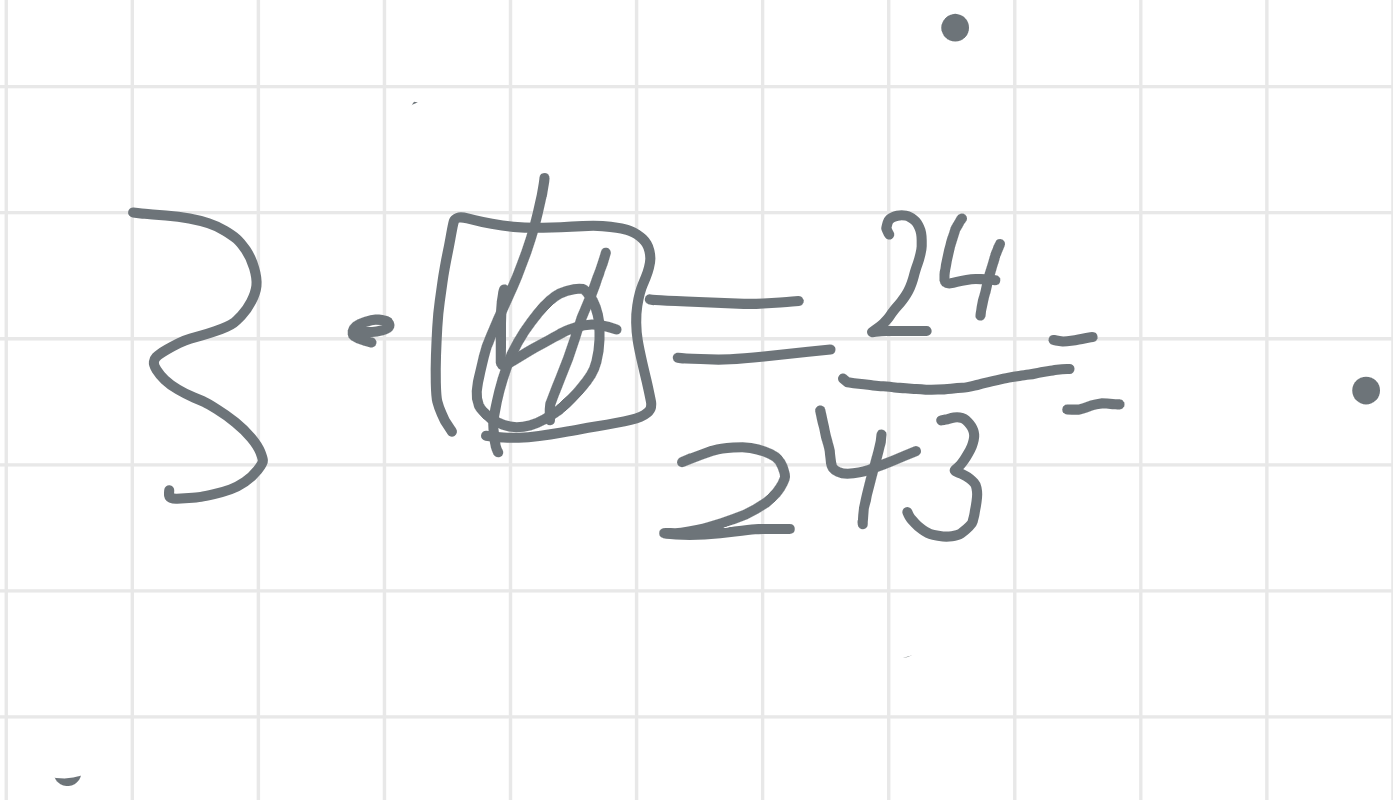 3 · = 24/243 =